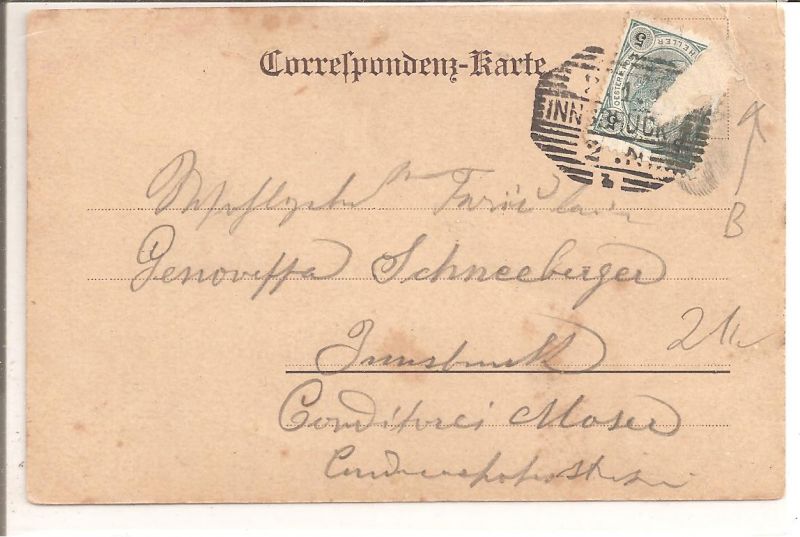 Correspondenz-Karte
5 HELLER 5
INNSBRUCK
2.N
B
Fräulein
Genoveffa Schneeberger
Innsbruck
Conditorei Moser